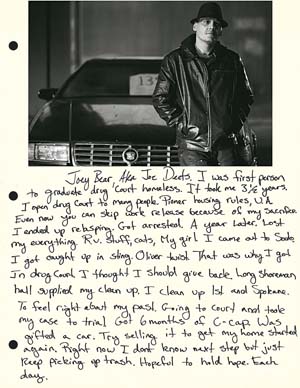 13
Joey Bear, Aka Joe Deets. I was first person
to graduate drug court homeless. It took me 3½ years.
I open drug court to many people. Pioner housing rules, U.A.
Even now you can skip work release because of my sacrifice
I ended up relapsing. Got arrested. A year later. Lost
my everything. R.V. Stuff, cats, My girl. I came out to Sodo,
I got caught up in sting. Oliver twist. That was why I got
In drug court. I thought I should give back. Long shoreman
hall supplied my clean up. I clean up 1st and Spokane.
To feel right about my past. Going to court and took
my case to trial Got 6 months of C-cap. Was
gifted a car. Try selling it to get my home started
again. Right now I dont know next step but just
Keep picking up trash. Hopeful to hold hope. Each
day.